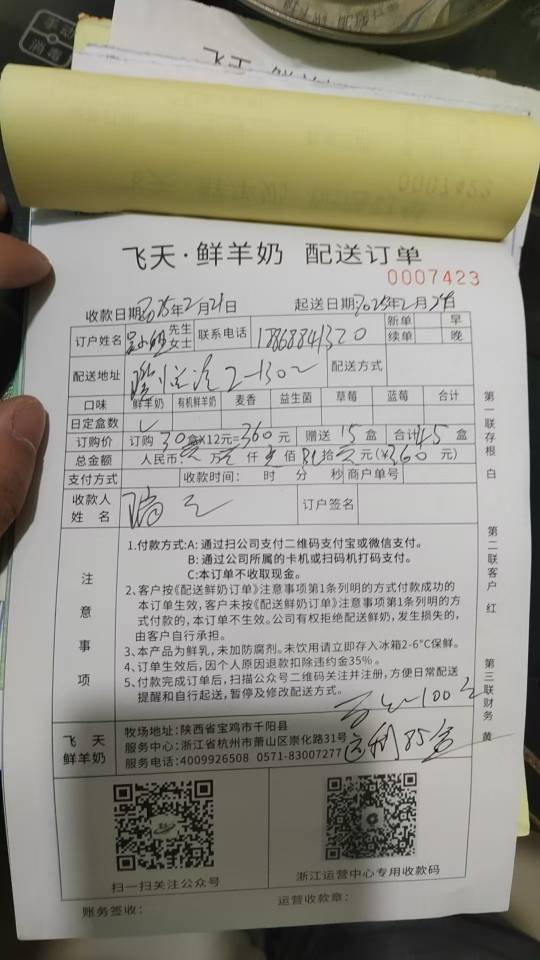 飞天·鲜羊奶 配送订单
0007423
收款日期:2025年2月21日 起送日期:2025年2月24日
订户姓名 先生 女士 联系电话 新单 早
续单 晚
配送地址 2-1302 配送方式
口味 鲜羊奶 有机鲜羊奶 麦香 益生菌 草莓 蓝莓 合计
日定盒数
订购价 订购 30盒×12元=360元 赠送 15盒 合计45盒
总金额 人民币: 万 仟 佰 拾 元(¥360元)
支付方式 收款时间: 时 分 秒 商户单号
收款人姓名 订户签名
注意事项
1.付款方式:A:通过扫公司支付二维码支付宝或微信支付。
B:通过公司所属的卡机或扫码机打码支付。
C:本订单不收取现金。
2、客户按《配送鲜奶订单》注意事项第1条列明的方式付款成功的
本订单生效,客户未按《配送鲜奶订单》注意事项第1条列明的方
式付款的,本订单不生效。公司有权拒绝配送鲜奶,发生损失的,
由客户自行承担。
3、本产品为鲜乳,未加防腐剂。未饮用请立即存入冰箱2-6°C保鲜。
4、订单生效后,因个人原因退款扣除违约金35%。
5、付款完成订单后,扫描公众号二维码关注并注册,方便日常配送
提醒和自行起送,暂停及修改配送方式。
100
飞天鲜羊奶
牧场地址:陕西省宝鸡市千阳县
服务中心:浙江省杭州市萧山区崇化路31号
服务电话:4009926508 0571-83007277
85盒
扫一扫关注公众号
浙江运营中心专用收款码
账务签收: 运营收款章:
第一联存根 白
第二联客户 红
第三联财务 黄